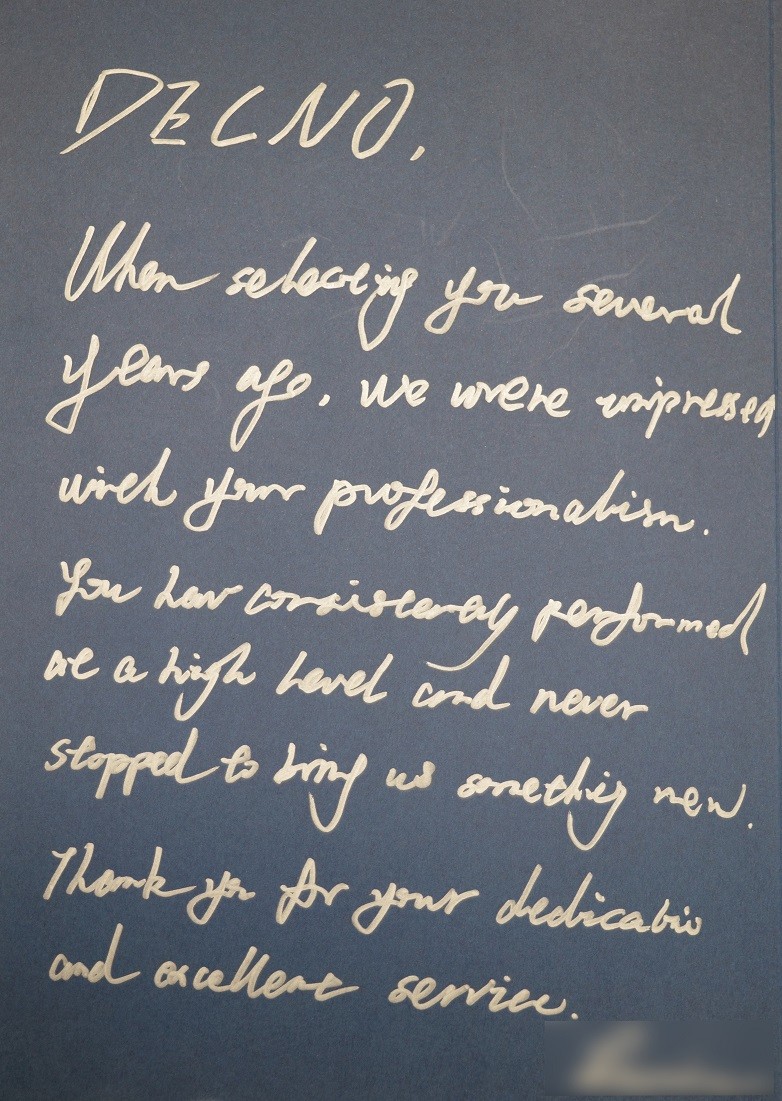 DECNO,
When selecting you several
years ago, we were impressed
with your professionalism.
You have consistently performed
at a high level and never
stopped to bring us something new.
Thank you for your dedicatio
and excellent service.